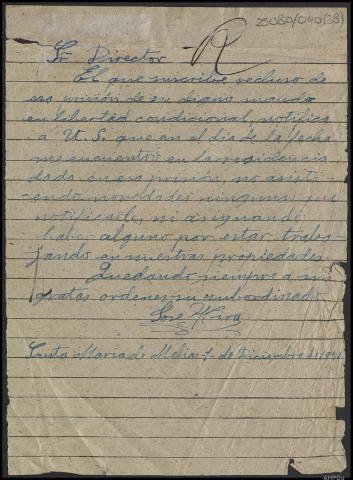 25080/040(38)
R
Sr Director
El que suscribe recluso de
esa prisión de su digno mando
en libertad condicional, notifica
a U.S. que en el dia de la fecha
me encuentro en la residencia
dada en esa prisión, no asisti-
endo novedades ninguna que
notificarle, ni asignando
haber alguno por estar traba-
jando en nuestras propiedades.
Quedando siempre a sus
gratas ordenes su subordinado
José
Santa Maria de Melias 1- de Diciembre de 1941
AHPOu